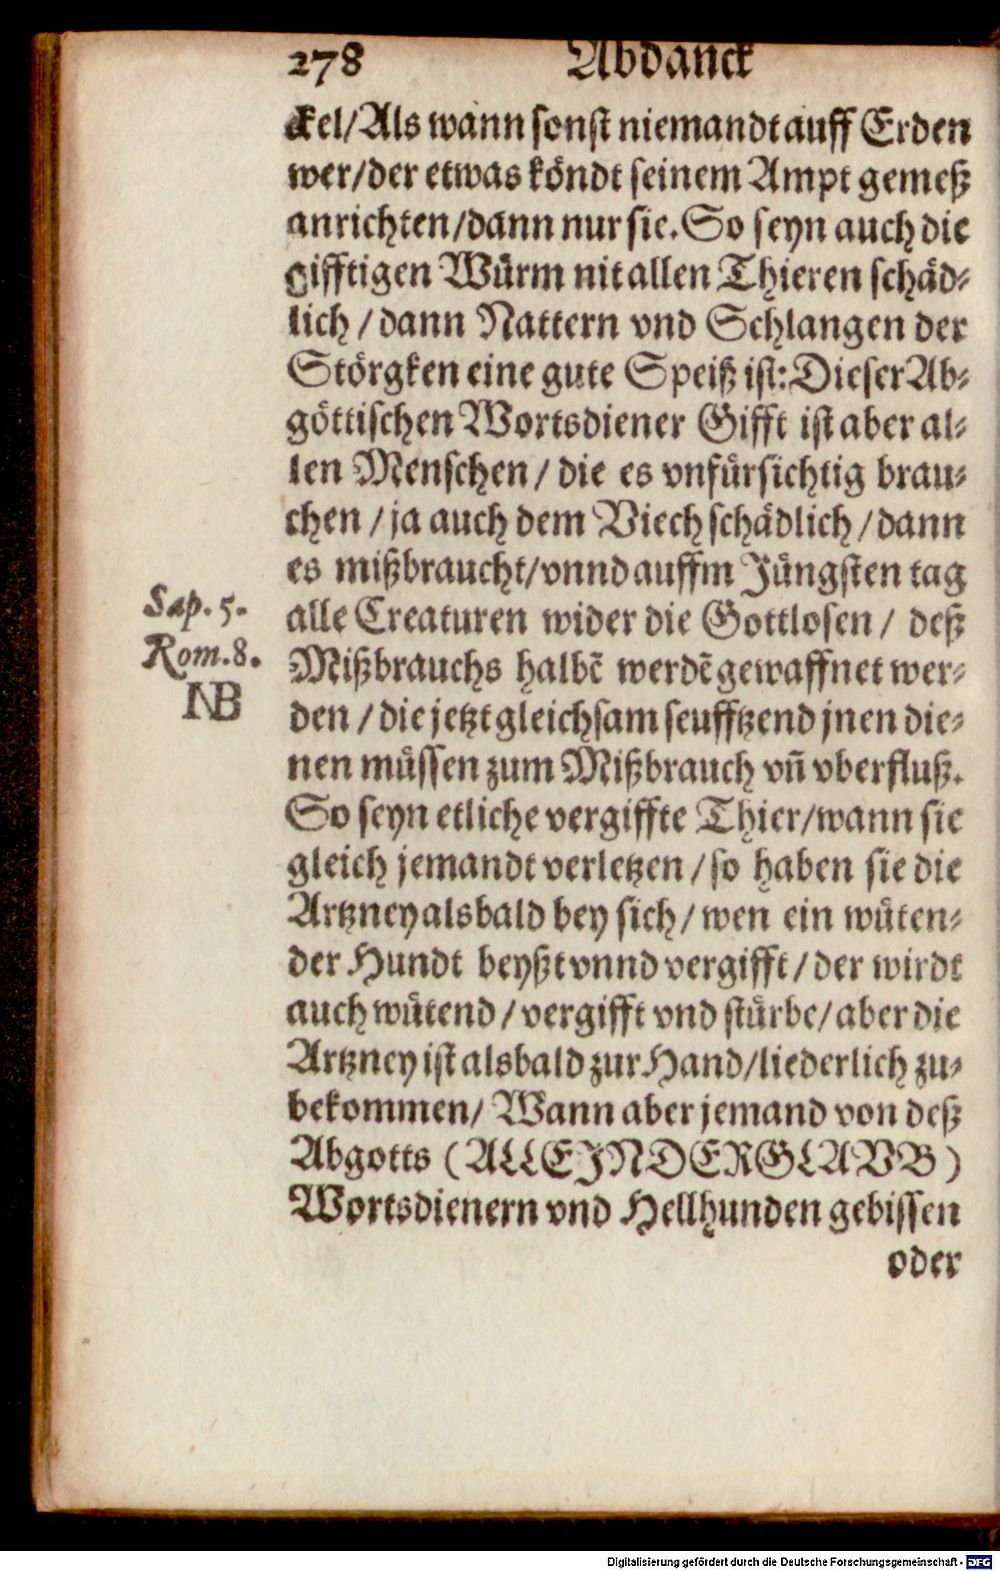 278 Abdanck
ckel/Als wann sonst niemandt auff Erden
wer/der etwas köndt seinem Ampt gemeß
anrichten/dann nur sie. So seyn auch die
gifftigen Würm nit allen Thieren schäd-
lich / dann Nattern vnd Schlangen der
Störgken eine gute Speiß ist: Dieser Ab-
göttischen Wortsdiener Gifft ist aber al-
len Menschen / die es vnfürsichtig brau-
chen / ja auch dem Viech schädlich / dann
es mißbraucht/vnnd auffm Jüngsten tag
Sap. 5.
alle Creaturen wider die Gottlosen / deß
Rom. 8.
Mißbrauchs halbẽ werdẽ gewaffnet wer-
NB
den / die jetzt gleichsam seufftzend jnen die-
nen müssen zum Mißbrauch vñ vberfluß.
So seyn etliche vergiffte Thier/wann sie
gleich jemandt verletzen / so haben sie die
Artzney alsbald bey sich / wen ein wüten-
der Hundt beyßt vnnd vergifft / der wirdt
auch wütend / vergifft vnd stürbe/ aber die
Artzney ist alsbald zur Hand/liederlich zu-
bekommen/ Wann aber jemand von deß
Abgotts (ALLEIN DER GLAVB)
Wortsdienern vnd Hellhunden gebissen
oder
Digitalisierung gefördert durch die Deutsche Forschungsgemeinschaft - DFG